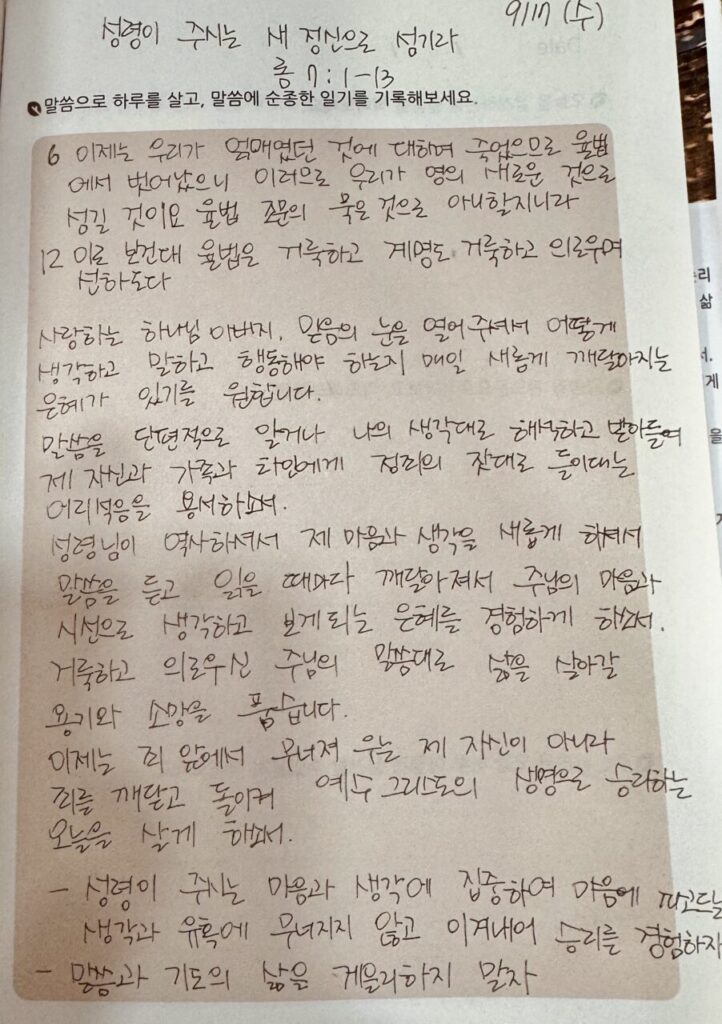 9/17 (수)
성령이 주시는 새 정신으로 섬기라
롬 7:1-13
말씀으로 하루를 살고, 말씀에 순종한 일기를 기록해보세요.
6 이제는 우리가 얽매였던 것에 대하여 죽었으므로 율법
에서 벗어났으니 이러므로 우리가 영의 새로운 것으로
섬길 것이요 율법 조문의 묵은 것으로 아니할지니라
12 이로 보건대 율법은 거룩하고 계명도 거룩하고 의로우며
선하도다
사랑하는 하나님 아버지. 믿음의 눈을 열어주셔서 어떻게
생각하고 말하고 행동해야 하는지 매일 새롭게 깨달아지는
은혜가 있기를 원합니다.
말씀을 단편적으로 알거나 나의 생각대로 해석하고 받아들여
제 자신과 가족과 타인에게 정죄의 잣대로 들이대는
어리석음을 용서하소서.
성령님이 역사하셔서 제 마음과 생각을 새롭게 하셔서
말씀을 듣고 읽을 때마다 깨달아져서 주님의 마음과
시선으로 생각하고 보게되는 은혜를 경험하게 하소서.
거룩하고 의로우신 주님의 말씀대로 삶을 살아갈
용기와 소망을 품습니다.
이제는 죄 앞에서 무너져 우는 제 자신이 아니라
죄를 깨닫고 돌이켜 예수 그리스도의 생명으로 승리하는
오늘을 살게 하소서.
- 성령이 주시는 마음과 생각에 집중하여 마음에 파고드는
생각과 유혹에 무너지지 않고 이겨내어 승리를 경험하자
- 말씀과 기도의 삶을 게을리하지 말자